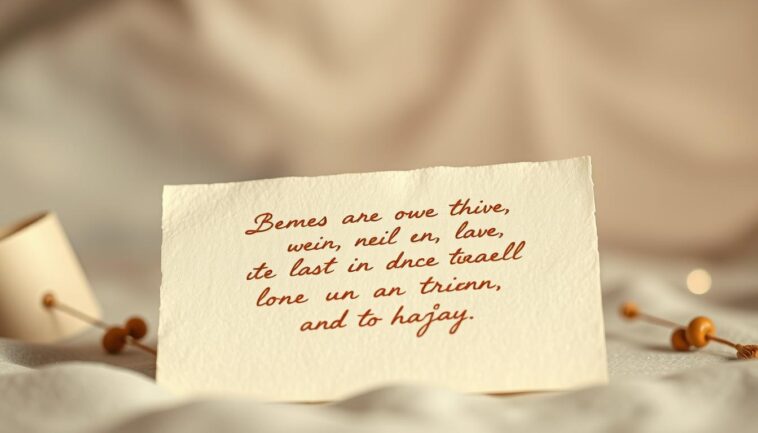 Bemes are owe thive,
wein, neil en, lave,
ite last in dnce tiraell
lone un an tricnn,
and to hajay.